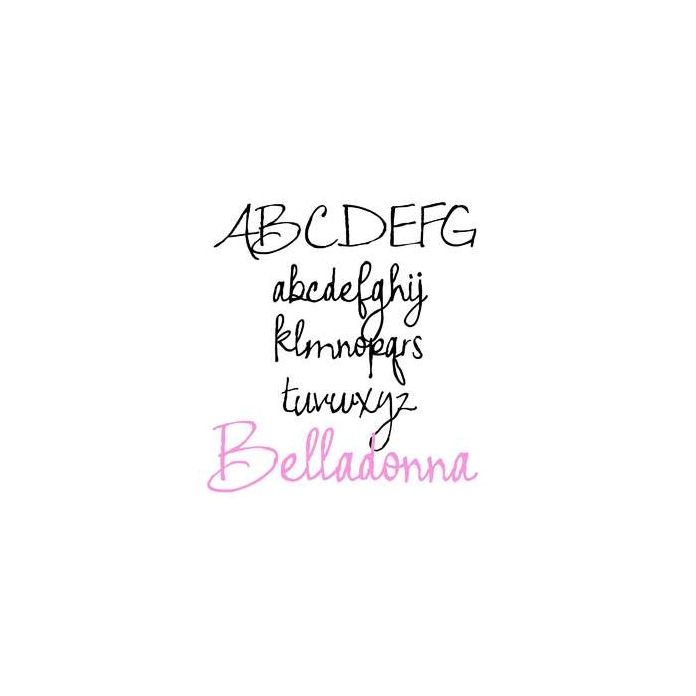 ABCDEFG
abcdefghij
klmnopqrs
tuvwxyz
Belladonna